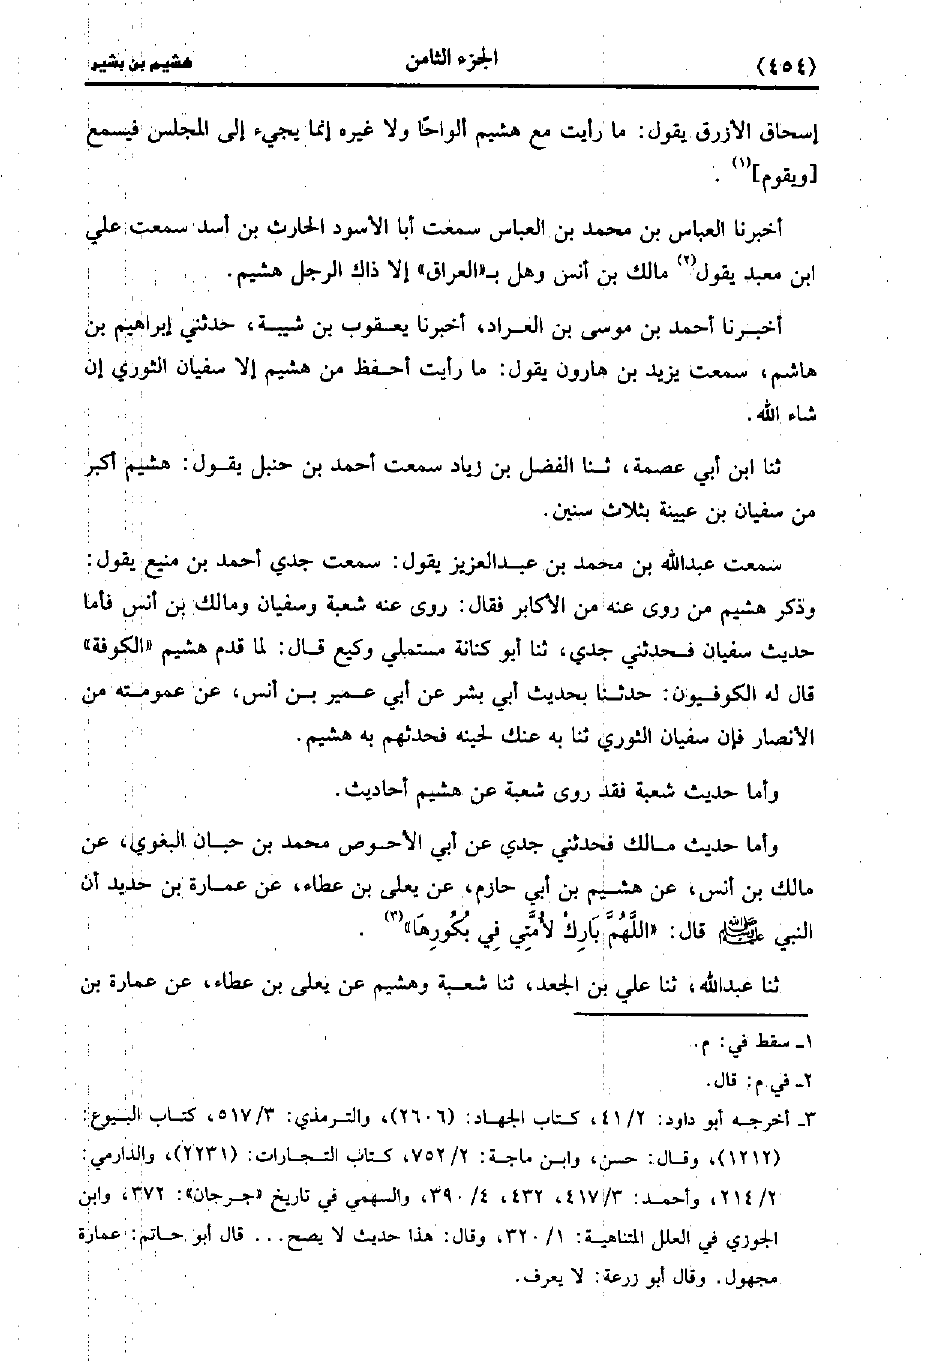 (٤٥٤) الجزء الثامن هشيم بن بشير
إسحاق الأزرق يقول: ما رأيت مع هشيم ألواحًا ولا غيره إنما يجيء إلى المجلس فيسمع
[ويقوم](١) .
أخبرنا العباس بن محمد بن العباس سمعت أبا الأسود الحارث بن أسد سمعت علي
ابن معبد يقول(٢) مالك بن أنس وهل بـ«العراق» إلا ذاك الرجل هشيم.
أخبـرنا أحمد بن موسى بن العـراد، أخبرنا يعـقوب بن شيبـة، حدثني إبراهيم بن
هاشم، سمعت يزيد بن هارون يقول: ما رأيت أحـفظ من هشيم إلا سفيان الثوري إن
شاء الله.
ثنا ابن أبي عصمة، ثـنا الفضل بن زياد سمعت أحمد بن حنبل يقـول: هشيم أكبر
من سفيان بن عيينة بثلاث سنين.
سمعت عبدالله بن محمد بن عبـدالعزيز يقول: سمعت جدي أحمد بن منيع يقول:
وذكر هشيم من روى عنه من الأكابر فقال: روى عنه شعبة وسفيان ومالك بن أنس فأما
حديث سفيان فـحدثني جدي، ثنا أبو كنانة مستملي وكيع قـال: لما قدم هشيم «الكوفة»
قال له الكوفـيون: حدثـنا بحديث أبي بشر عن أبي عـمير بـن أنس، عن عمومـته من
الأنصار فإن سفيان الثوري ثنا به عنك لحينه فحدثهم به هشيم.
وأما حديث شعبة فقد روى شعبة عن هشيم أحاديث.
وأما حديث مـالك فحدثني جدي عن أبي الأحـوص محمد بن حبـان البغوي، عن
مالك بن أنس، عن هشـيم بن أبي حازم، عن يعلى بن عطاء، عن عمـارة بن حديد أن
النبي ﷺ قال: «اللَّهُمَّ بَارِكْ لأُمَّتِي فِي بُكُورِهَا»(٣) .
ثنا عبدالله، ثنا علي بن الجعد، ثنا شعـبة وهشيم عن يعلى بن عطاء، عن عمارة بن
١ـ سقط في: م.
٢ـ في م: قال.
٣ـ أخرجـه أبو داود: ٢/ ٤١، كتاب الجهاد: (٢٦٠٦)، والتـرمذي: ٣/ ٥١٧، كتـاب البـيوع:
(١٢١٢)، وقـال: حسن، وابـن ماجـة: ٢/ ٧٥٢، كـتاب التـجـارات: (٢٢٣١)، والدارمي:
٢/ ٢١٤، وأحمـد: ٣/ ٤١٧، ٤٣٢، ٤/ ٣٩٠، والسهمي في تاريخ «جـرجان»: ٣٧٢، وابن
الجوزي في العلل المتناهيـة: ١/ ٣٢٠، وقال: هذا حديث لا يصح... قال أبو حـاتم: عمارة
مجهول. وقال أبو زرعة: لا يعرف.